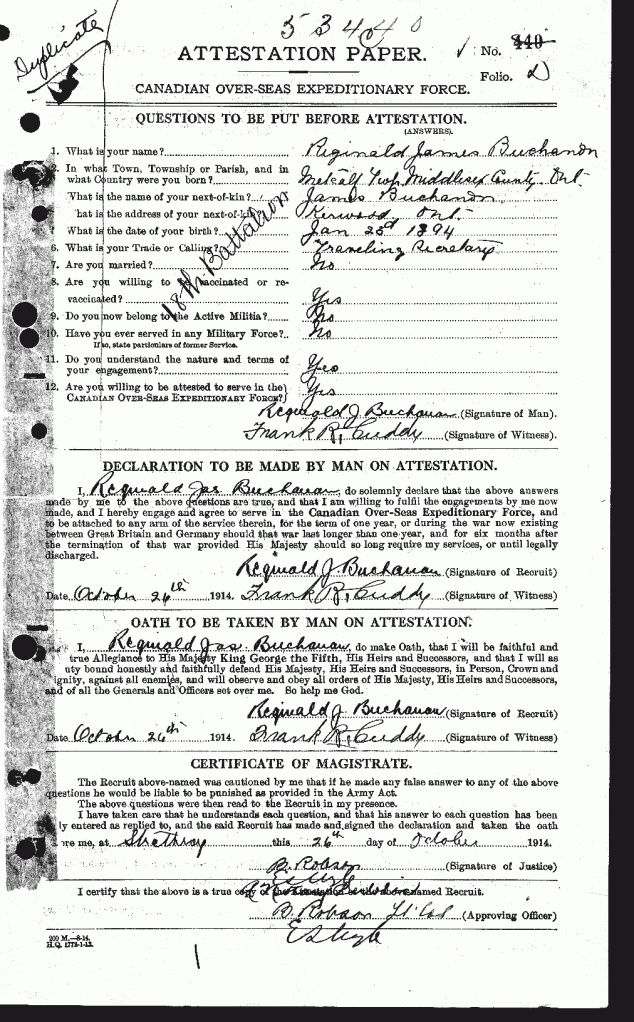 Duplicate
53404
ATTESTATION PAPER.
No. 440
Folio. D
CANADIAN OVER-SEAS EXPEDITIONARY FORCE.
QUESTIONS TO BE PUT BEFORE ATTESTATION.
(ANSWERS).
1. What is your name? Reginald James Buchanan
2. In what Town, Township or Parish, and in
what Country were you born? Metcalf Twp. Middlesex County. Ont.
What is the name of your next-of-kin? James Buchanan
hat is the address of your next-of-kin? Kerwood, Ont.
What is the date of your birth? Jan 1894
6. What is your Trade or Calling? Traveling Secretary
7. Are you married? No
8. Are you willing to be vaccinated or re-
vaccinated? Yes
9. Do you now belong to the Active Militia? No
10. Have you ever served in any Military Force? No
If so, state particulars of former Service.
11. Do you understand the nature and terms of
your engagement? Yes
12. Are you willing to be attested to serve in the
CANADIAN OVER-SEAS EXPEDITIONARY FORCE? Yes
18th Battalion
Reginald J Buchanan (Signature of Man).
Frank R. Cuddy (Signature of Witness).
DECLARATION TO BE MADE BY MAN ON ATTESTATION.
I, Reginald Jas Buchanan, do solemnly declare that the above answers
made by me to the above questions are true, and that I am willing to fulfil the engagements by me now
made, and I hereby engage and agree to serve in the Canadian Over-Seas Expeditionary Force, and
to be attached to any arm of the service therein, for the term of one year, or during the war now existing
between Great Britain and Germany should that war last longer than one year, and for six months after
the termination of that war provided His Majesty should so long require my services, or until legally
discharged.
Reginald J. Buchanan (Signature of Recruit)
Date October 26th 1914. Frank R. Cuddy (Signature of Witness)
OATH TO BE TAKEN BY MAN ON ATTESTATION.
I, Reginald Jas. Buchanan, do make Oath, that I will be faithful and
true Allegiance to His Majesty King George the Fifth, His Heirs and Successors, and that I will as
uty bound honestly and faithfully defend His Majesty, His Heirs and Successors, in Person, Crown and
ignity, against all enemies, and will observe and obey all orders of His Majesty, His Heirs and Successors,
and of all the Generals and Officers set over me. So help me God.
Reginald J Buchanan (Signature of Recruit)
Date October 26th 1914. Frank R. Cuddy (Signature of Witness)
CERTIFICATE OF MAGISTRATE.
The Recruit above-named was cautioned by me that if he made any false answer to any of the above
questions he would be liable to be punished as provided in the Army Act.
The above questions were then read to the Recruit in my presence.
I have taken care that he understands each question, and that his answer to each question has been
ly entered as replied to, and the said Recruit has made and signed the declaration and taken the oath
re me, at Strathroy this 26th day of October 1914.
B. Robson (Signature of Justice)
I certify that the above is a true copy of the Attestation of the above-named Recruit.
B. Robson Lt Col (Approving Officer)
200 M.—8-14.
H.Q. 1772-1-12.